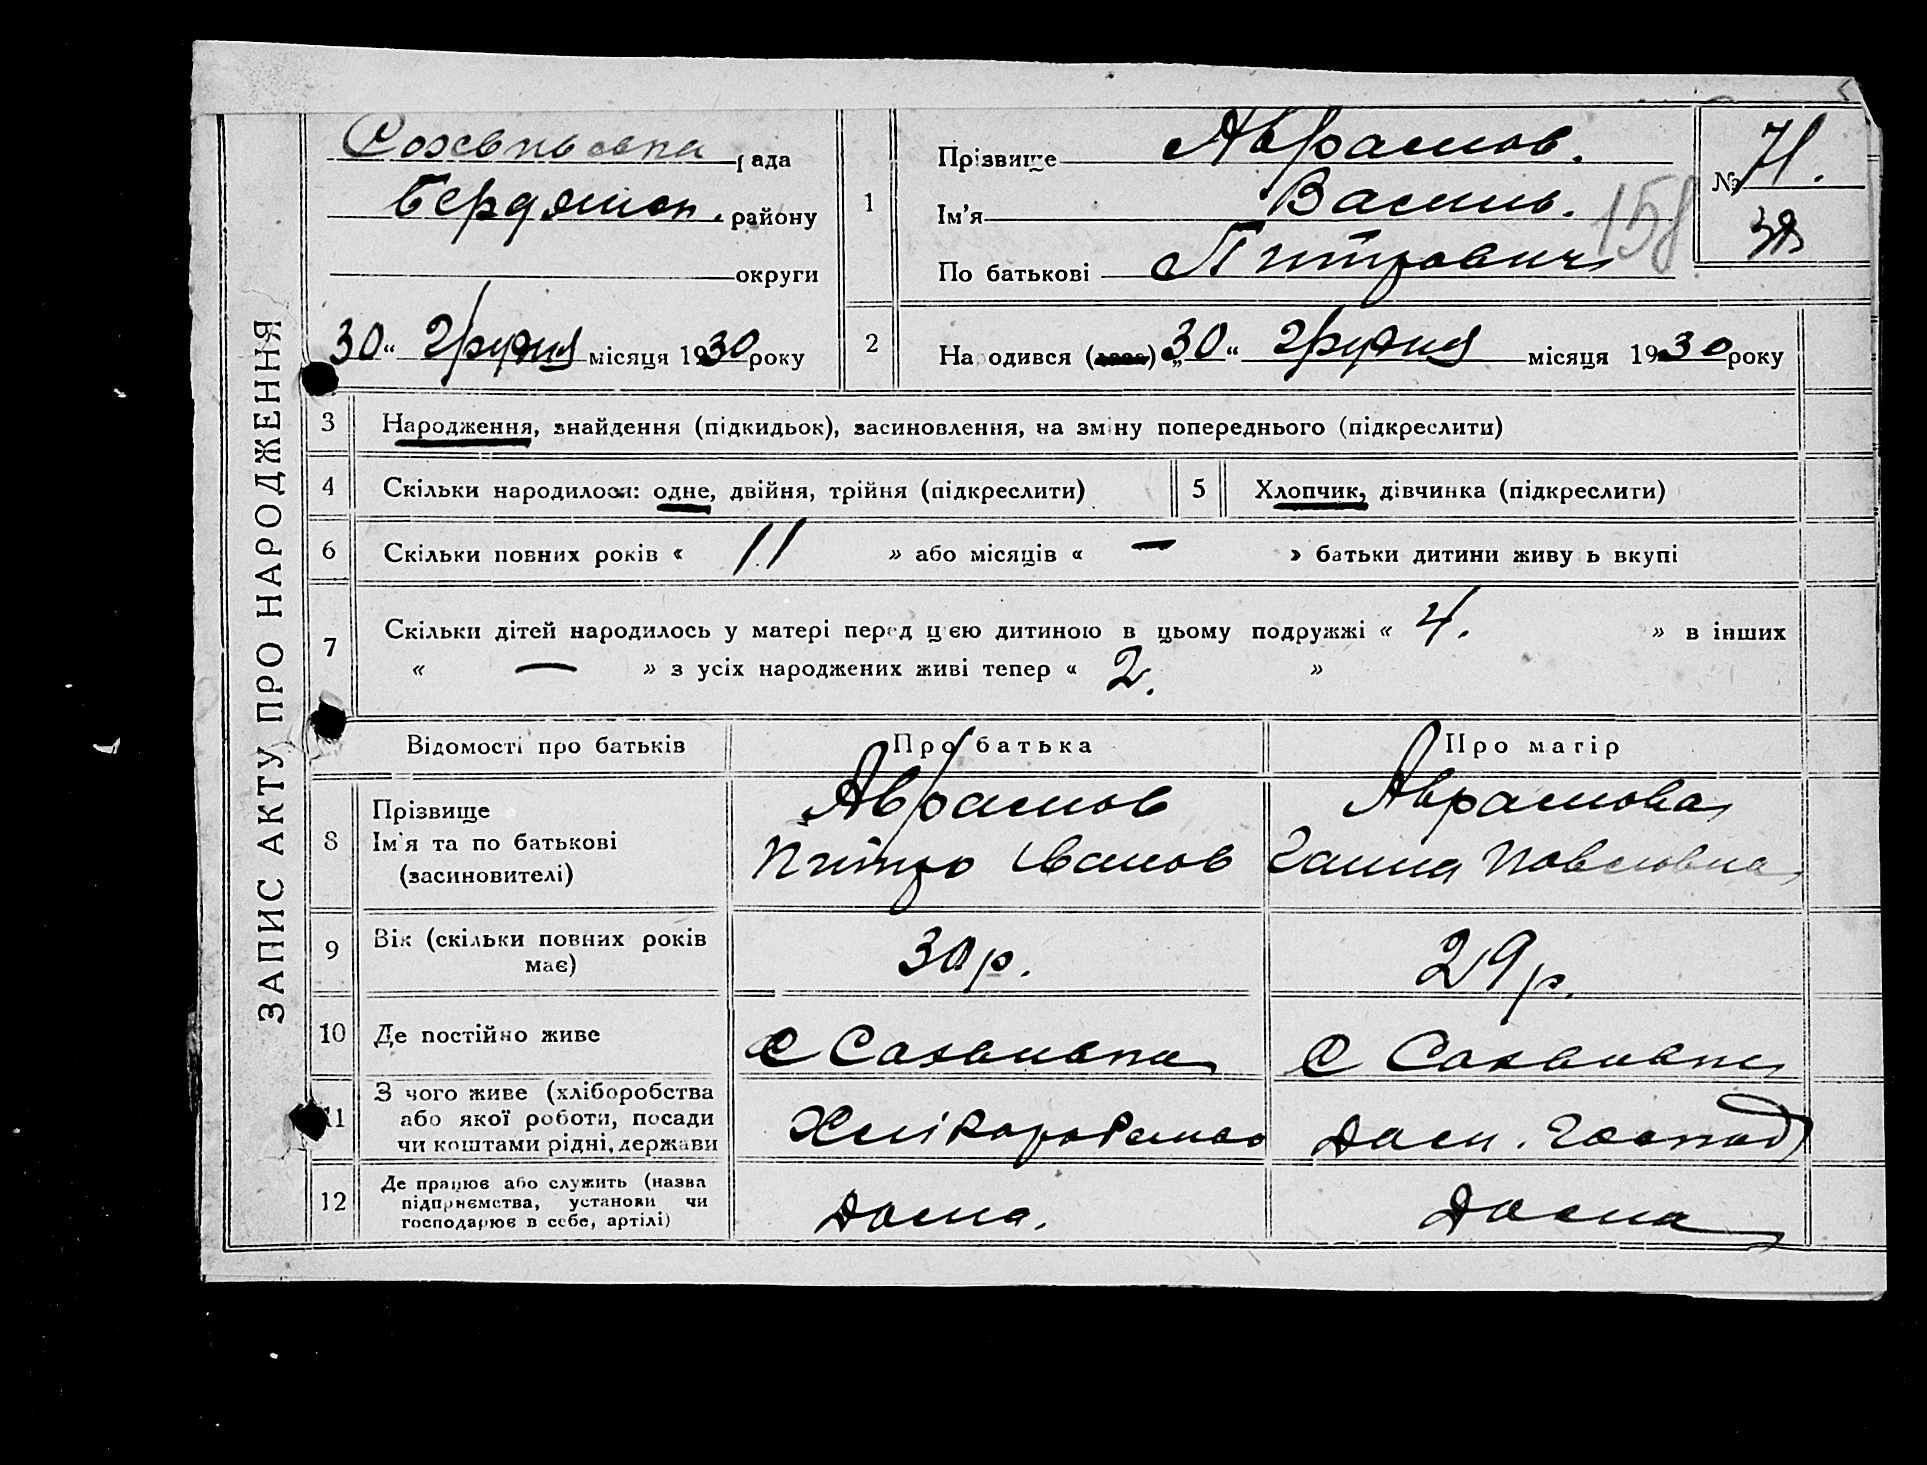 ЗАПИС АКТУ ПРО НАРОДЖЕННЯ
рада
Бердянск. району
округи
30 " грудня місяця 1930 року
1
Прізвище Аврамов.
Ім'я Василь.
По батькові Питрович
№ 71.
158
2
Народився ( ) „ 30 " грудня місяця 1930 року
3 Народження, знайдення (підкидьок), засиновлення, на зміну попереднього (підкреслити)
4 Скільки народилося: одне, двійня, трійня (підкреслити)
5 Хлопчик, дівчинка (підкреслити)
6 Скільки повних років « 11 » або місяців « — » батьки дитини живуть вкупі
7 Скільки дітей народилось у матері перед цією дитиною в цьому подружжі « 4. » в інших
« — » з усіх народжених живі тепер « 2. »
Відомості про батьків
Про батька
Про матір
8 Прізвище
Ім'я та по батькові
(засиновителі)
Аврамов
Питро Іванов
Аврамова
Ганна Повловна
9 Вік (скільки повних років
має)
30 р.
29 р.
10 Де постійно живе
с
с
11 З чого живе (хліборобства
або якої роботи, посади
чи коштами рідні, держави
Хліборобство
Дом. Господ
12 Де працює або служить (назва
підприємства, установи чи
господарює в себе, артілі)
Дома.
Дома